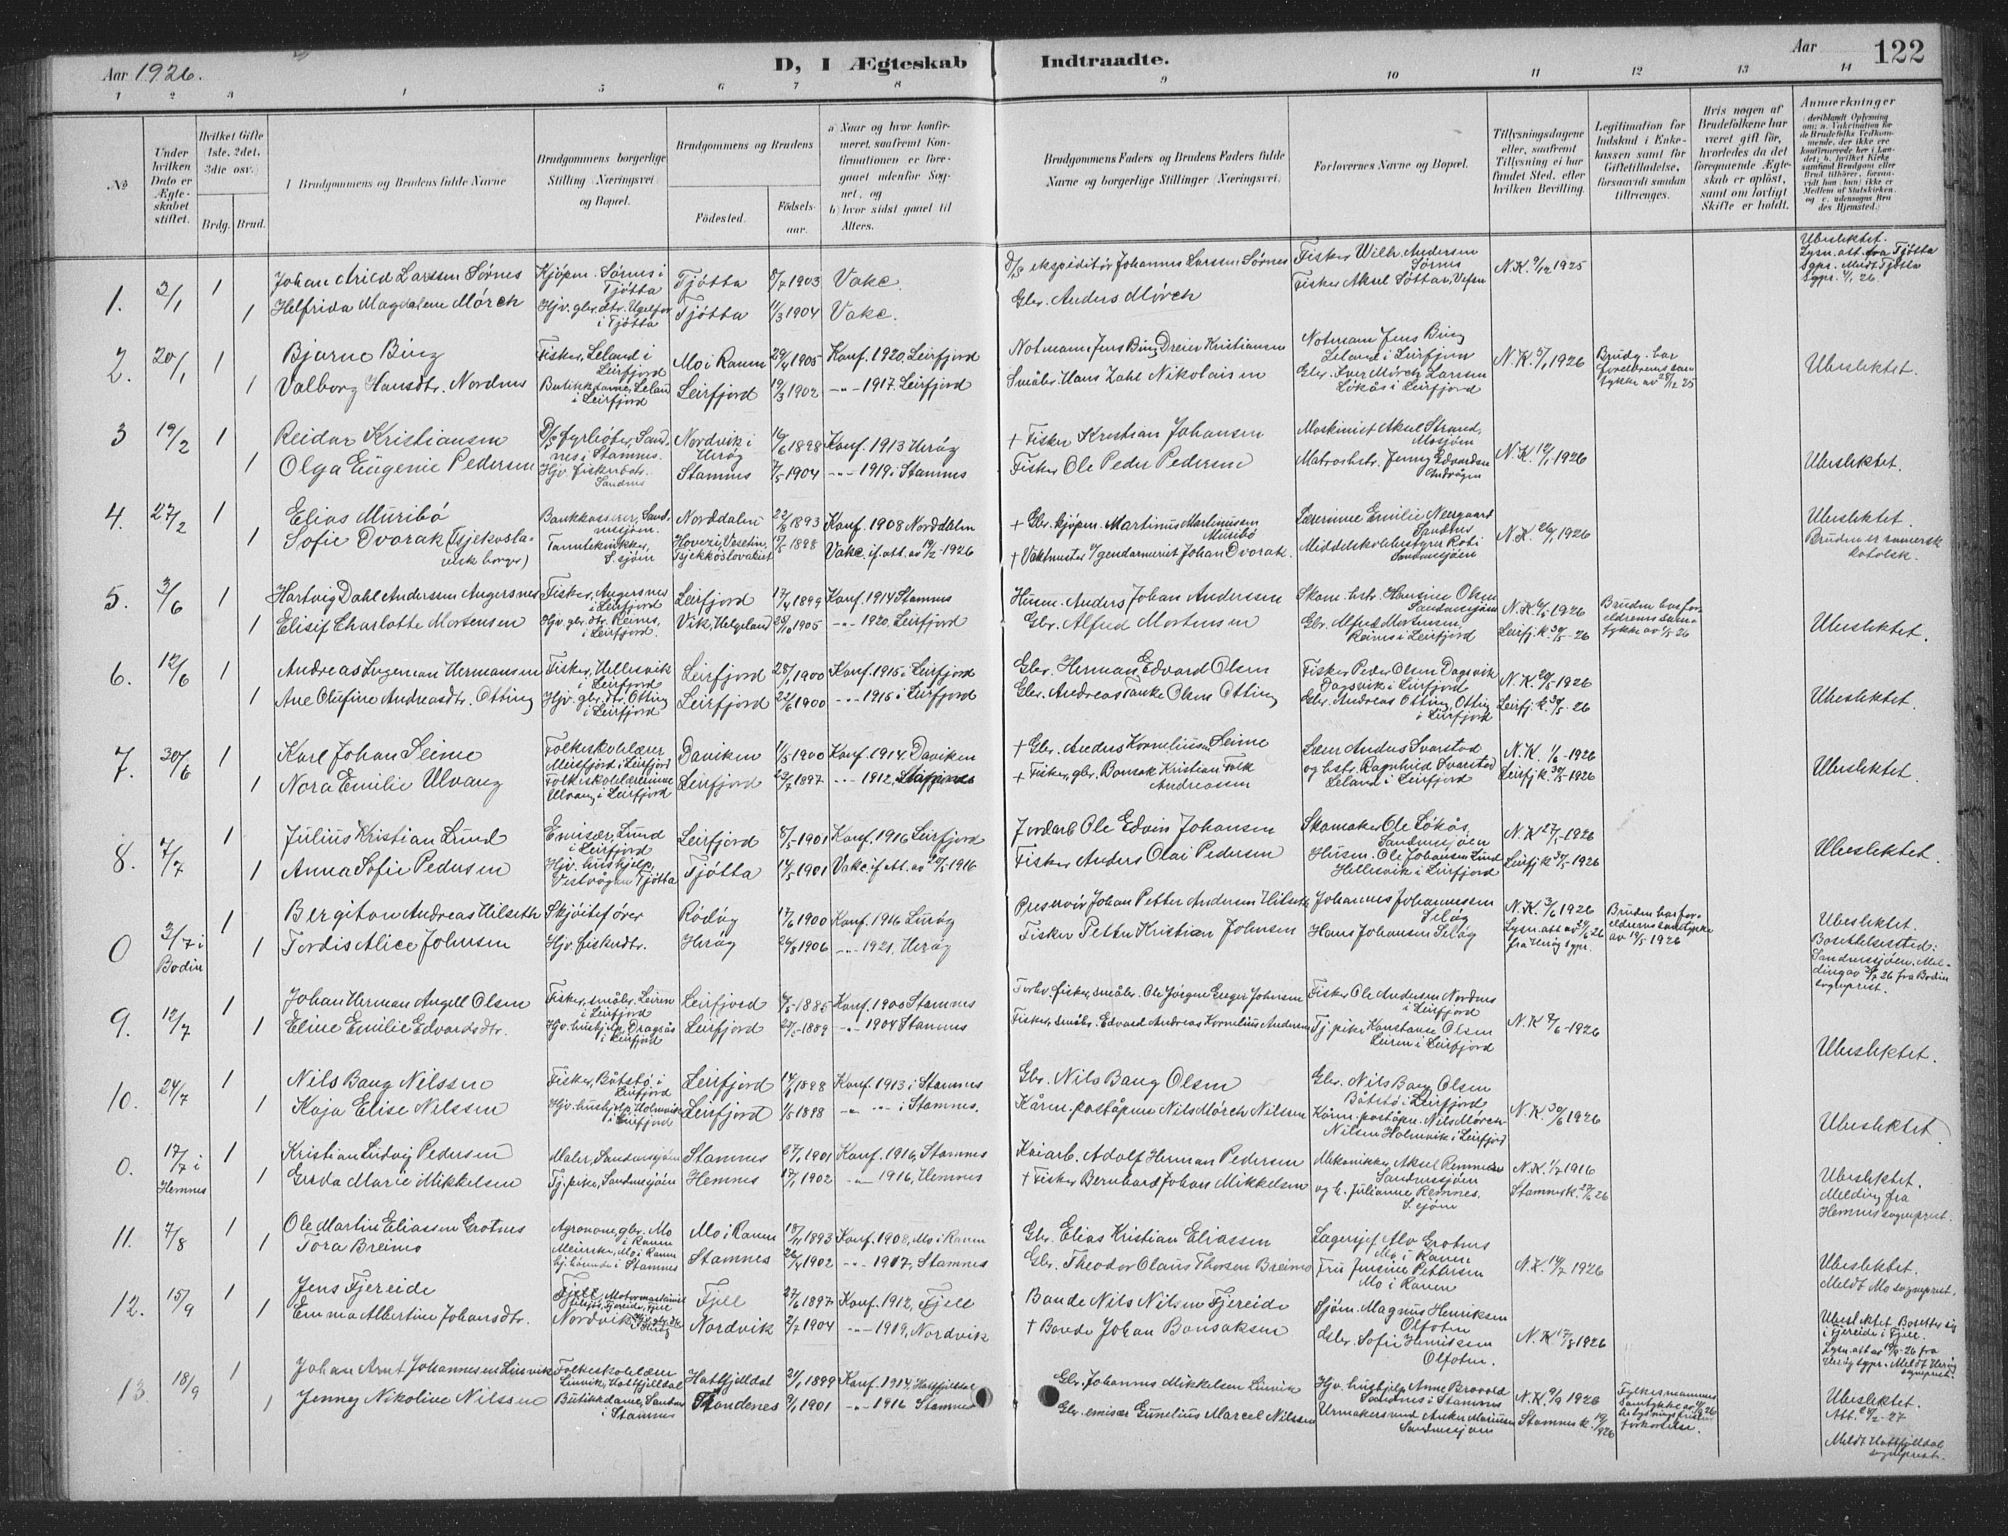 Aar 1926.
D, I Ægteskab Indtraadte.
Aar
122
1 2 3 4 5 6 7 8 9 10 11 12 13 14
No
Under hvilken Dato er Ægteskabet stiftet.
Hvilket Gifte 1ste, 2det, 3die osv.
Brdg. Brud.
Brudgommens og Brudens fulde Navne
Brudgommens borgerlige Stilling (Næringsvei) og Bopæl.
Brudgommens og Brudens
Fødested.
Fødselsaar.
a) Naar og hvor konfirmeret, saafremt Konfirmationen er foregaaet udenfor Sognet, og
b) hvor sidst gaaet til Alters.
Brudgommens Faders og Brudens Faders fulde Navne og borgerlige Stillinger (Næringsvei).
Forlovernes Navne og Bopæl.
Tillysningsdagene eller, saafremt Tillysning ei har fundet Sted, efter hvilken Bevilling.
Legitimation for Indskud i Enkekassen samt for Giftetilladelse, forsaavidt saadan tiltrænges.
Hvis nogen af Brudefolkene har været gift før, hvorledes da det foregaaende Ægteskab er opløst, samt om lovligt Skifte er holdt.
Anmærkninger
1. 2/1 1 Johan Arild Larssen Sørnes Kjøpm. Sørnes i Tjøtta Tjøtta 8/7 1903 Vakc. D/S ekspeditør Johannes Larssen Sørnes Fisker Wilh. Andersen Sørnes N.K. 9/12 1925 Ubeslektet. Lysn. att. fra Tjøtta Sgpr. Meldt Tjøtta Sgpr. 4/1 26.
1 Helfrida Magdalene Mørch Hjv. gbr. dtr. i Tjøtta Tjøtta 11/3 1904 Vakc. Gbr. Anders Mørch Fisker Aksel Søttar, Vefsn
2. 20/1 1 Bjarne Bing Fisker, Leland i Leirfjord Mo i Ranen 29/4 1905 Konf. 1920, Leirfjord Notmann Jens Bing Dreier Kristiansen Notmann Jens Bing Leland i Leirfjord N.K. 5/1 1926 Brudg. har forelderenes samtykke av 28/12 25 Ubeslektet.
1 Valborg Hansdtr. Nordnes Butikkdame, Leland i Leirfjord Leirfjord 19/3 1902 -"- 1917 Leirfjord Småbr. Hans Zahl Nikolaisen Gbr. Iver Mørch Larssen Løkås i Leirfjord
3 19/2 1 Reidar Kristiansen D/S fyrbøter, Sandnes i Stamnes. Nordvik i Herøy 16/6 1898 Konf. 1913 Herøy + Fisker Kristian Johansen Maskinist Aksel Strand, Mosjøen N.K. 12/1 1926 Ubeslektet.
1 Olga Eugenie Pedersen Hjv. fiskerdatr. Sandnes Stamnes 7/5 1904 -"- 1919 i Stamnes Fisker Ole Peder Pedersen Matroshstr. Jenny Edvardsen
4. 27/2 1 Elias Muribø Bankkasserer, Sandnessjøen. Norddalen 22/8 1893 Konf. 1908 Norddalen + Gbr. kjøpm. Martinus Martinussen Muribø Lærerinne Emilie Neergaard Sandnes N.K. 26/1 1926 Ubeslektet. Bruden er romersk katolsk.
1 Sofie Dvorak (Tsjekoslovakisk borger) Tanntekniker, S.sjøen Hovezi, Vesetin, Tsjekkoslovakiet 17/5 1898 Vakc. if. att. av 19/2-1926 + Vaktmester v/gendarmeriet Johan Dvorak Middelskolebestyrer Sandnessjøen
5. 3/6 1 Hartvig Dahl Andersen Angersnes Fisker, Angersnes i Leirfjord Leirfjord 17/4 1899 Konf. 1914 Stamnes Husm. Anders Johan Anderssen Skom. hstr. Hansine Olsen Sandnessjøen N.K. 6/5 1926 Bruden has foreldrenes samtykke av 1/5 26 Ubeslektet.
1 Elisif Charlotte Mortensen Hjv. gbr. dtr. Reines, i Leirfjord. Vik, Helgeland 28/10 1905 -"- 1920, Leirfjord Gbr. Alfred Mortensen Gbr. Alfred Mortensen, Reines i Leirfjord Leirfj. k. 30/5-26
6. 12/6 1 Andreas Ingeman Hermansen Fisker, Hellesvik i Leirfjord Leirfjord 28/1 1900 Konf. 1915 i Leirfjord Gbr. Herman Edvard Olsen Fisker Peder Olsen Dagsvik Dagsvik i Leirfjord N.K. 20/5-1926 Ubeslektet.
1 Ane Olufine Andreasdtr. Otting Hjv. gbr. dtr. Otting i Leirfjord Leirfjord 22/6 1900 -"- 1915 i Leirfjord Gbr. Andreas Tanke Olsen Otting Gbr. Andreas Otting, Otting i Leirfjord Leirfj. k. 30/5-26
7. 30/6 1 Karl Johan Seime Folkeskolelærer Meisfjord i Leirfjord Daviken 1/5 1900 Konf. 1914. Daviken + Gbr. Anders Korneliussen Seime Lærer Anders Svarstad N.K. 1/6-1926 Ubeslektet.
1 Nora Emilie Ulvang Folkeskolelærerinne Ulvang i Leirfjord Leirfjord 23/7 1897 -"- 1912, Stamnes + Fisker, gbr. Bonsak Kristian Falk Andreassen og hstr. Ragnhild Svarstad Leland i Leirfjord Leirfj. k. 30/5-1926
8. 7/7 1 Julius Kristian Lund Emisær, Lund i Leirfjord Leirfjord 8/5 1901 Konf. 1916 Leirfjord Jordarb. Ole Edvin Johansen Skomaker Ole Løkås, Sandnessjøen N.K. 27/5-1926 Ubeslektet.
1 Anna Sofie Pedersen Hjv. hushjelp, Vestvågen Tjøtta Tjøtta 14/5 1901 Vakc. if. att. av 20/5 1916 Fisker Anders Olai Pedersen Husm. Ole Johansen Lund Hellesvik i Leirfjord Leirfj. k. 30/5-1926
0 3/7 i Bodin 1 Bergiton Andreas Hilseth Skjøitefører Rødøy 17/6 1900 Konf. 1916 Lurøy Preservør Johan Petter Andersen Hilseth Johannes Johannessen Seløy N.K. 3/6 1926 Bruden har foreldrenes samtykke av 19/5 1926 Ubeslektet. Bosettelsessted: Sandnessjøen. Melding av 3/7 26 fra Bodin sogneprest.
1 Tordis Alice Johnsen Hjv. fiskerdtr. Herøy 26/8 1906 -"- 1921, Herøy Fisker Petter Kristian Johnsen Hans Johansen Seløy Lysn. att. av 24/6 26 fra Herøy sgpr.
9. 12/7 1 Johan Herman Angell Olsen Fisker, småbr. Leiren i Leirfjord Leirfjord 7/5-1885 Konf. 1900 Stamnes Forhv. fisker, småbr. Ole Jørgen Greger Johnsen Fisker Ole Andersen Nordnes i Leirfjord N.K. 8/6-1926 Ubeslektet.
1 Eline Emilie Edvardsdtr. Hjv. hushjelp Dragsås i Leirfjord Leirfjord 27/5-1889 -"- 1904 Stamnes Fisker, småbr. Edvard Andreas Kornelius Andersen Tj. pike Konstanse Olsen Leiren i Leirfjord
10. 24/7 1 Nils Bang Nilssen Fisker, Båtstø i Leirfjord Leirfjord 14/1 1898 Konf. 1913 i Stamnes Gbr. Nils Bang Olsen Gbr. Nils Bang Olsen Båtstø i Leirfjord N.K. 30/6 1926 Ubeslektet.
1 Kaja Elise Nilssen Hjv. hushjelp, Holmvik i Leirfjord Leirfjord 1/5 1898 -"- -"- i Stamnes. Kårm. poståpner Nils Mørch Nilssen Kårm. poståpn. Nils Mørch Nilsen Holmvik i Leirfjord
0. 17/7 i Hemnes 1 Kristian Ludvig Pedersen Maler, Sandnessjøen Stamnes 27/1 1901 Konf. 1916, Stamnes Kaiarb. Adolf Herman Pedersen Mekaniker Aksel Remmen Sandnessjøen N.K. 1/7 1916 Ubeslektet. Melding fra Hemnes sogneprest.
1 Gerda Marie Mikkelsen Tj. pike, Sandnessjøen Hemnes 17/1 1902 -"- 1916, Hemnes + Fisker Bernhard Johan Mikkelsen og h. Julianne Remnes, S.sjøen Stamnes k. 27/6 26
11. 7/8 1 Ole Martin Eliassen Grotnes Agronom, gbr. Mo i Ranen Mo i Ranen 18/11 1893 Konf. 1908, Mo i Ranen Gbr. Elias Kristian Eliassen Lagersjef Alv Grotnes Mo i Ranen N.K. 14/7 1926 Ubeslektet. Meldt Mo sogneprest.
1 Tora Breimo Meierske, Mo i Ranen i Stamnes Stamnes 26/4 1902 -"- 1917, Stamnes Gbr. Theodor Olaus Thorsen Breimo Fru Jensine Pettersen Mo i Ranen
12. 15/9 1 Jens Fjereide Fjell, Fjereide, Fjell Fjell 27/6 1897 Konf. 1912, Fjell Bonde Nils Nilsen Fjereide Sjøm. Magnus Henriksen Olfoten N.K. 17/8 1926 Ubeslektet. Bosetter sig i Fjereide i Fjell. Lysn. att av 14/9-26 fra Herøy sgpr. Meldt Herøy sogneprest.
1 Emma Albertine Johansdtr. Nordvik i Herøy Nordvik 2/7 1904 -"- 1919, Nordvik + Bonde Johan Bonsaksen Gbr. Sofie Henriksen Olfoten.
13 18/9 1 Johan Arnt Johannesen Linvik Folkeskolelærer Linvik, Hatfjelldal Hatfjelldal 21/1 1899 Konf. 1914, Hatfjelldal Gbr. Johannes Mikkelsen Linvik Hjv. hushjelp Anne Brovold Sandnes i Stamnes N.K. 9/9 1926 Ubeslektet. Att. 24/2-27 Meldt Hatfjelldal sogneprest.
1 Jenney Nikoline Nilssen Butikkdame, Sandnes i Stamnes Trondenes 9/1 1901 -"- 1916 Stamnes Gbr. emisær Cunelius Marcel Nilssen Urmakersvend Anker Mariussen Sandnessjøen Stamnes k. 12/9 1926